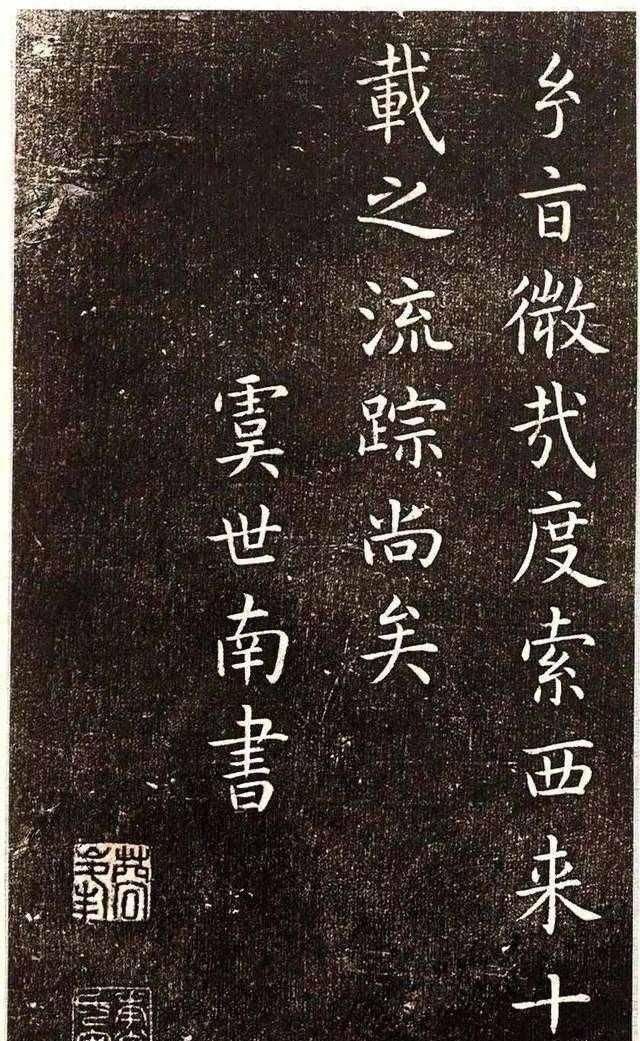 㫖微哉度索西来十
載之流踪尚矣
虞世南書